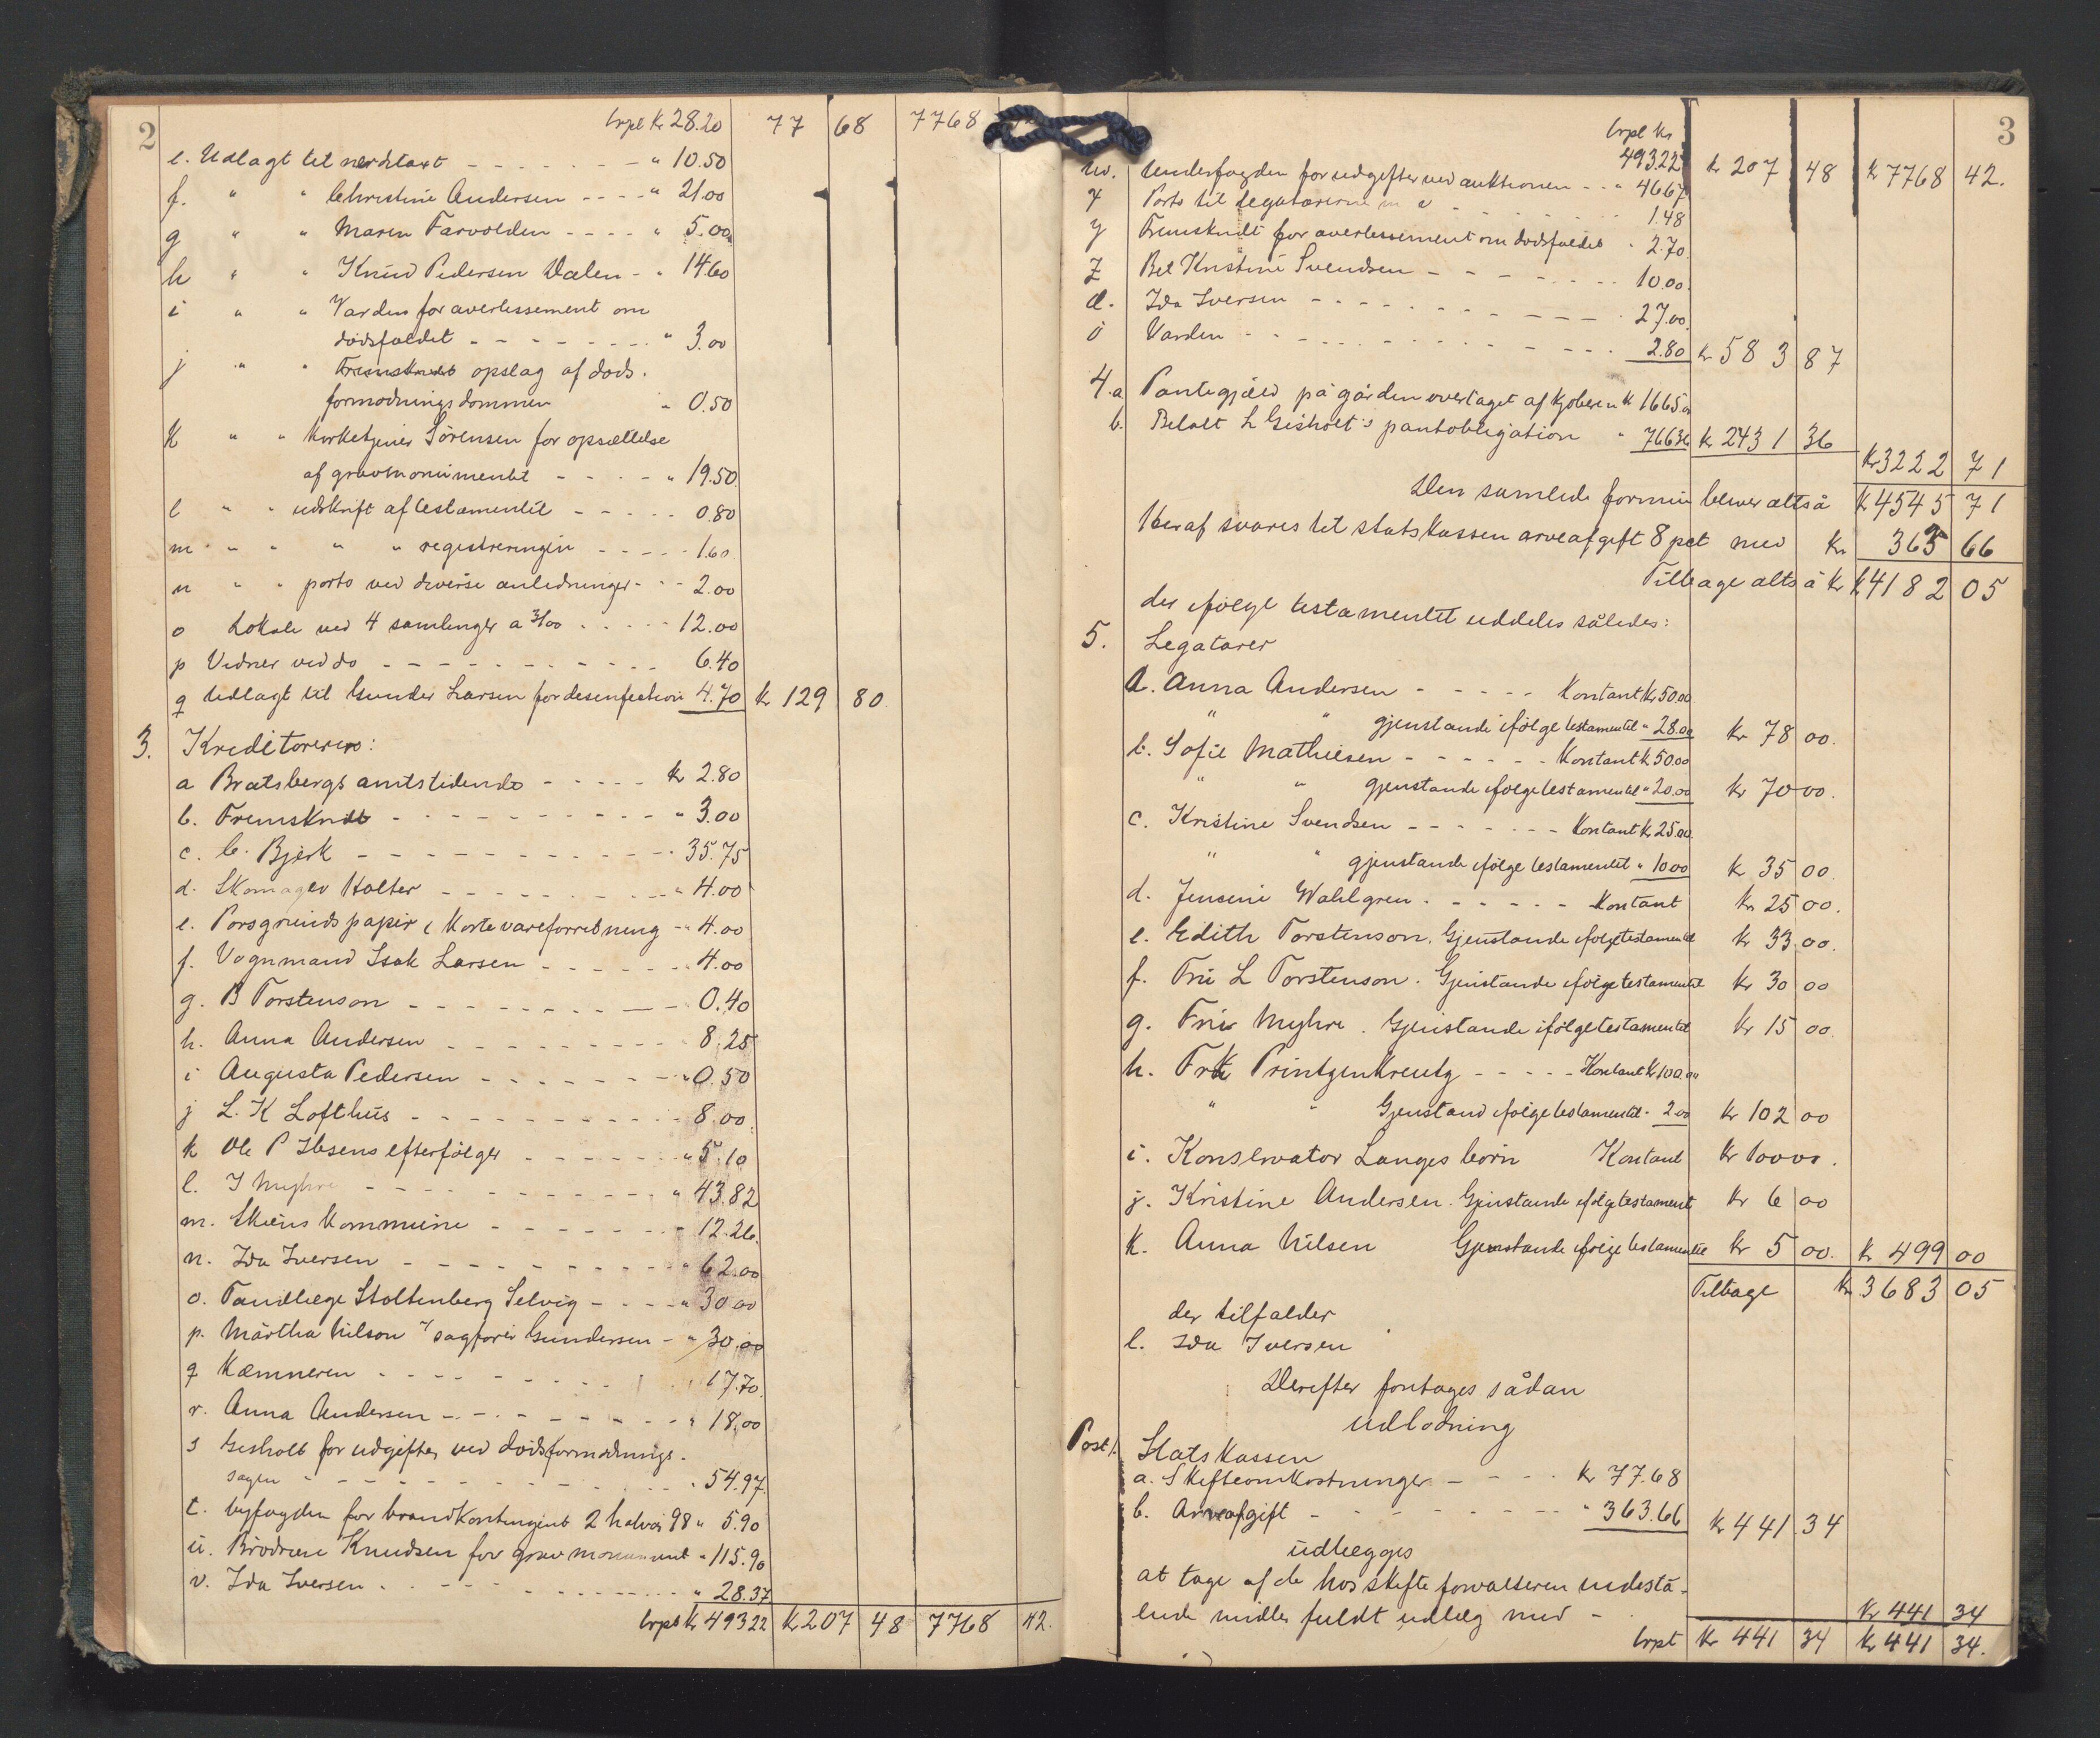 2
Trpt kr 28.20 77 68 7768
e. Udlagt til værditaxt " 10.50
f. " " Christine Andersen " 21.00
g " " Maren Farvolden " 5.00
h " " Knud Pedersen Dalen " 14.60
i " " Varden for avertissement om
dødsfaldet " 3.00
j " " Fremskridt opslag af døds-
formodningsdommen " 0.50
k " " Kirketjener Sørensen for opsættelse
af gravmonumentet " 19.50
l " " udskrift af testamentet 0.80
m " " " " registreringen 1.60
n " " porto ved diverse anledninger 2.00
o Lokale ved 4 samlinger a 3/00 12.00
p Vidner ved do 6.40
q Udlagt til Gunder Larsen for desenfection 4.70 kr 129 80
3. Kreditorerne:
a Bratsbergs amtstidende kr 2.80
b. Fremskridt " 3.00
c. C. Bjørk " 35.75
d. Skomager Holter " 4.00
e. Porsgrunds papir & kortevareforretning " 4.00
f. Vognmand Isak Larsen 4.00
g. B Torstenson 0.40
h. Anna Andersen 8.25
i Augusta Pedersen " 0.50
j L. K Lofthus 8.00
k Ole P Ibsens efterfølger " 5.10
l. I Myhre " 43.82
m. Skiens kommune " 12.26
n. Ida Iversen " 62.00
o. Tandlæge Stoltenberg Selvig " 30.00
p. Märtha Nilson v/ sagfører Gundersen " 30.00
q Kæmneren 17.70
r. Anna Andersen " 18.00
s Gisholt for udgifter ved dødsformodnings-
sagen " 54.97
t. byfogden for brandkontingent 2 halvår 98 " 5.90
u. Brødrene Knudsen for gravmonument " 115.90
v. Ida Iversen " 28.37
Trpt kr 493 22 k 207 48 7768 42.
3
Trpt kr
493.22 kr 207 48 kr 7768 42.
w. Underfogden for udgifter ved auktionen " 46.67
x Porto til legatarerne m v 1.48
y Fremskridt for avertissement om dødsfaldet " 2.70
z Bet Kristine Svendsen 10.00
æ. Ida Iversen 27.00
ö Varden 2.80 kr 583 87
4.a Pantegjæld på gården overtaget af kjøberen kr 1665.00
b. Betalt L Gisholt's pantobligation " 766.36 kr 2431 36
kr 3222 71
Den samlede formue bliver altså kr 4545 71
Heraf svares til statskassen arveafgift 8 pct med kr 363 66
Tilbage altså kr 4182 05
der ifølge testamentet uddeles således:
5. Legatarer
a. Anna Andersen Kontant kr 50.00
" " gjenstande ifølge testamentet " 28.00 kr 78 00.
b. Sofie Mathiesen Kontant kr 50.00
" " gjenstande ifølge testamentet " 20.00 kr 70 00.
c. Kristine Svendsen Kontant kr 25.00
" " gjenstande ifølge testamentet " 10.00 kr 35 00.
d. Jensine Wahlgren Kontant kr 25 00.
e. Edith Torstenson. Gjenstande ifølge testamentet kr 33 00.
f. Fru L Torstenson. Gjenstande ifølge testamentet kr 30 00
g. Fru Myhre. Gjenstande ifølge testamentet kr 15 00.
h. Frk Printzenkreutz Kontant kr 100.00
" " Gjenstand ifølge testamentet " 2.00 kr 102 00
i. Konservator Langes börn Kontant kr 100 00.
j. Kristine Andersen. Gjenstande ifølge testament kr 6 00
k. Anna Nilsen Gjenstande ifølge testamentet kr 5 00. kr 499 00
Tilbage kr 3683 05
der tilfalder
l. Ida Iversen
Derefter foretages sådan
udlodning
Post 1. Statskassen
a. Skifteomkostninger kr 77.68
b. Arveafgift " 363.66 kr 441 34
udlægges
at tage af de hos skifteforvalteren indestå-
ende midler fuldt udlæg med kr 441 34
Trpt kr 441 34 kr 441 34.